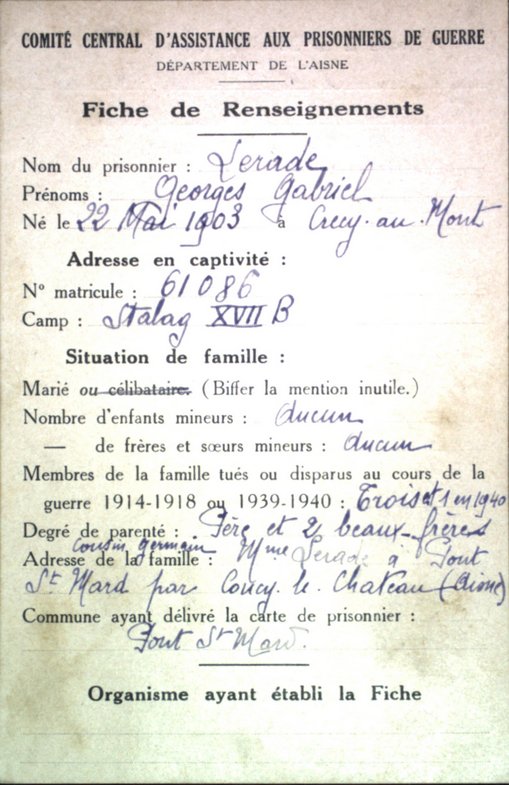 COMITÉ CENTRAL D'ASSISTANCE AUX PRISONNIERS DE GUERRE
DÉPARTEMENT DE L'AISNE
Fiche de Renseignements
Nom du prisonnier : Lerade
Prénoms : Georges Gabriel
Né le 22 Mai 1903 à Crécy-au-Mont
Adresse en captivité :
N° matricule : 61086
Camp : Stalag XVII B
Situation de famille :
Marié ou célibataire. (Biffer la mention inutile.)
Nombre d'enfants mineurs : Aucun
— de frères et sœurs mineurs : Aucun
Membres de la famille tués ou disparus au cours de la
guerre 1914-1918 ou 1939-1940 : Trois et 1 en 1940
Degré de parenté : Père et 2 beaux-frères
cousin germain
Adresse de la famille : Mme Lerade à Pont
St Mard par Coucy-le-Chateau (Aisne)
Commune ayant délivré la carte de prisonnier :
Pont St Mard.
Organisme ayant établi la Fiche